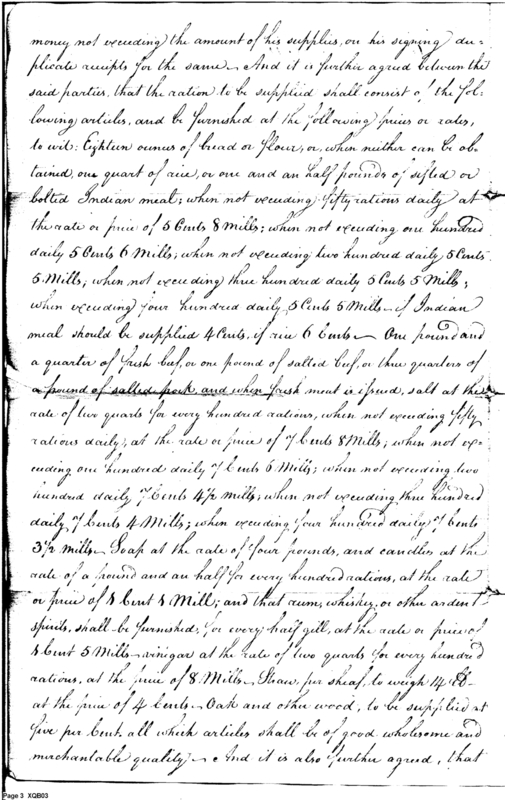 money not exceeding the amount of his supplies, on his signing du-
plicate receipts for the same – And it is further agreed between the
said parties, that the ration to be supplied shall consist of the fol-
lowing articles, and be furnished at the following prices or rates,
to wit: Eighteen ounces of bread or flour, or, when neither can be ob-
tained, one quart of rice, or one and an half pounds of sifted or
bolted Indian meal; when not exceeding fifty rations daily at
the rate or price of 5 Cents 8 Mills; when not exceeding one hundred
daily 5 Cents 6 Mills; when not exceeding two hundred daily 5 Cents
5 Mills; when not exceeding three hundred daily 5 Cents 5 Mills;
when exceeding four hundred daily 5 Cents 5 Mills – if Indian
meal should be supplied 4 Cents, if rice 6 Cents – One pound and
a quarter of fresh beef, or one pound of salted beef, or three quarters of
a pound of salted pork, and when fresh meat is issued, salt at the
rate of two quarts for every hundred rations, when not exceeding fifty
rations daily, at the rate or price of 7 Cents 8 Mills; when not ex-
ceeding one hundred daily 7 Cents 6 Mills; when not exceeding two
hundred daily 7 Cents 4½ Mills; when not exceeding three hundred
daily 7 Cents 4 Mills; when exceeding four hundred daily 7 Cents
3½ Mills – Soap at the rate of four pounds, and candles at the
rate of a pound and an half for every hundred rations, at the rate
or price of 1 Cent 1 Mill; and that rum, whiskey, or other ardent
spirits, shall be furnished, for every half gill, at the rate or price of
1 Cent 5 Mills – vinegar at the rate of two quarts for every hundred
rations, at the price of 8 Mills – Straw, per sheaf, to weigh 14 lb –
at the price of 4 Cents – Oak and other wood, to be supplied at
five per Cent. all which articles shall be of good wholesome and
merchantable quality – And it is also further agreed, that
Page 3 XQB03